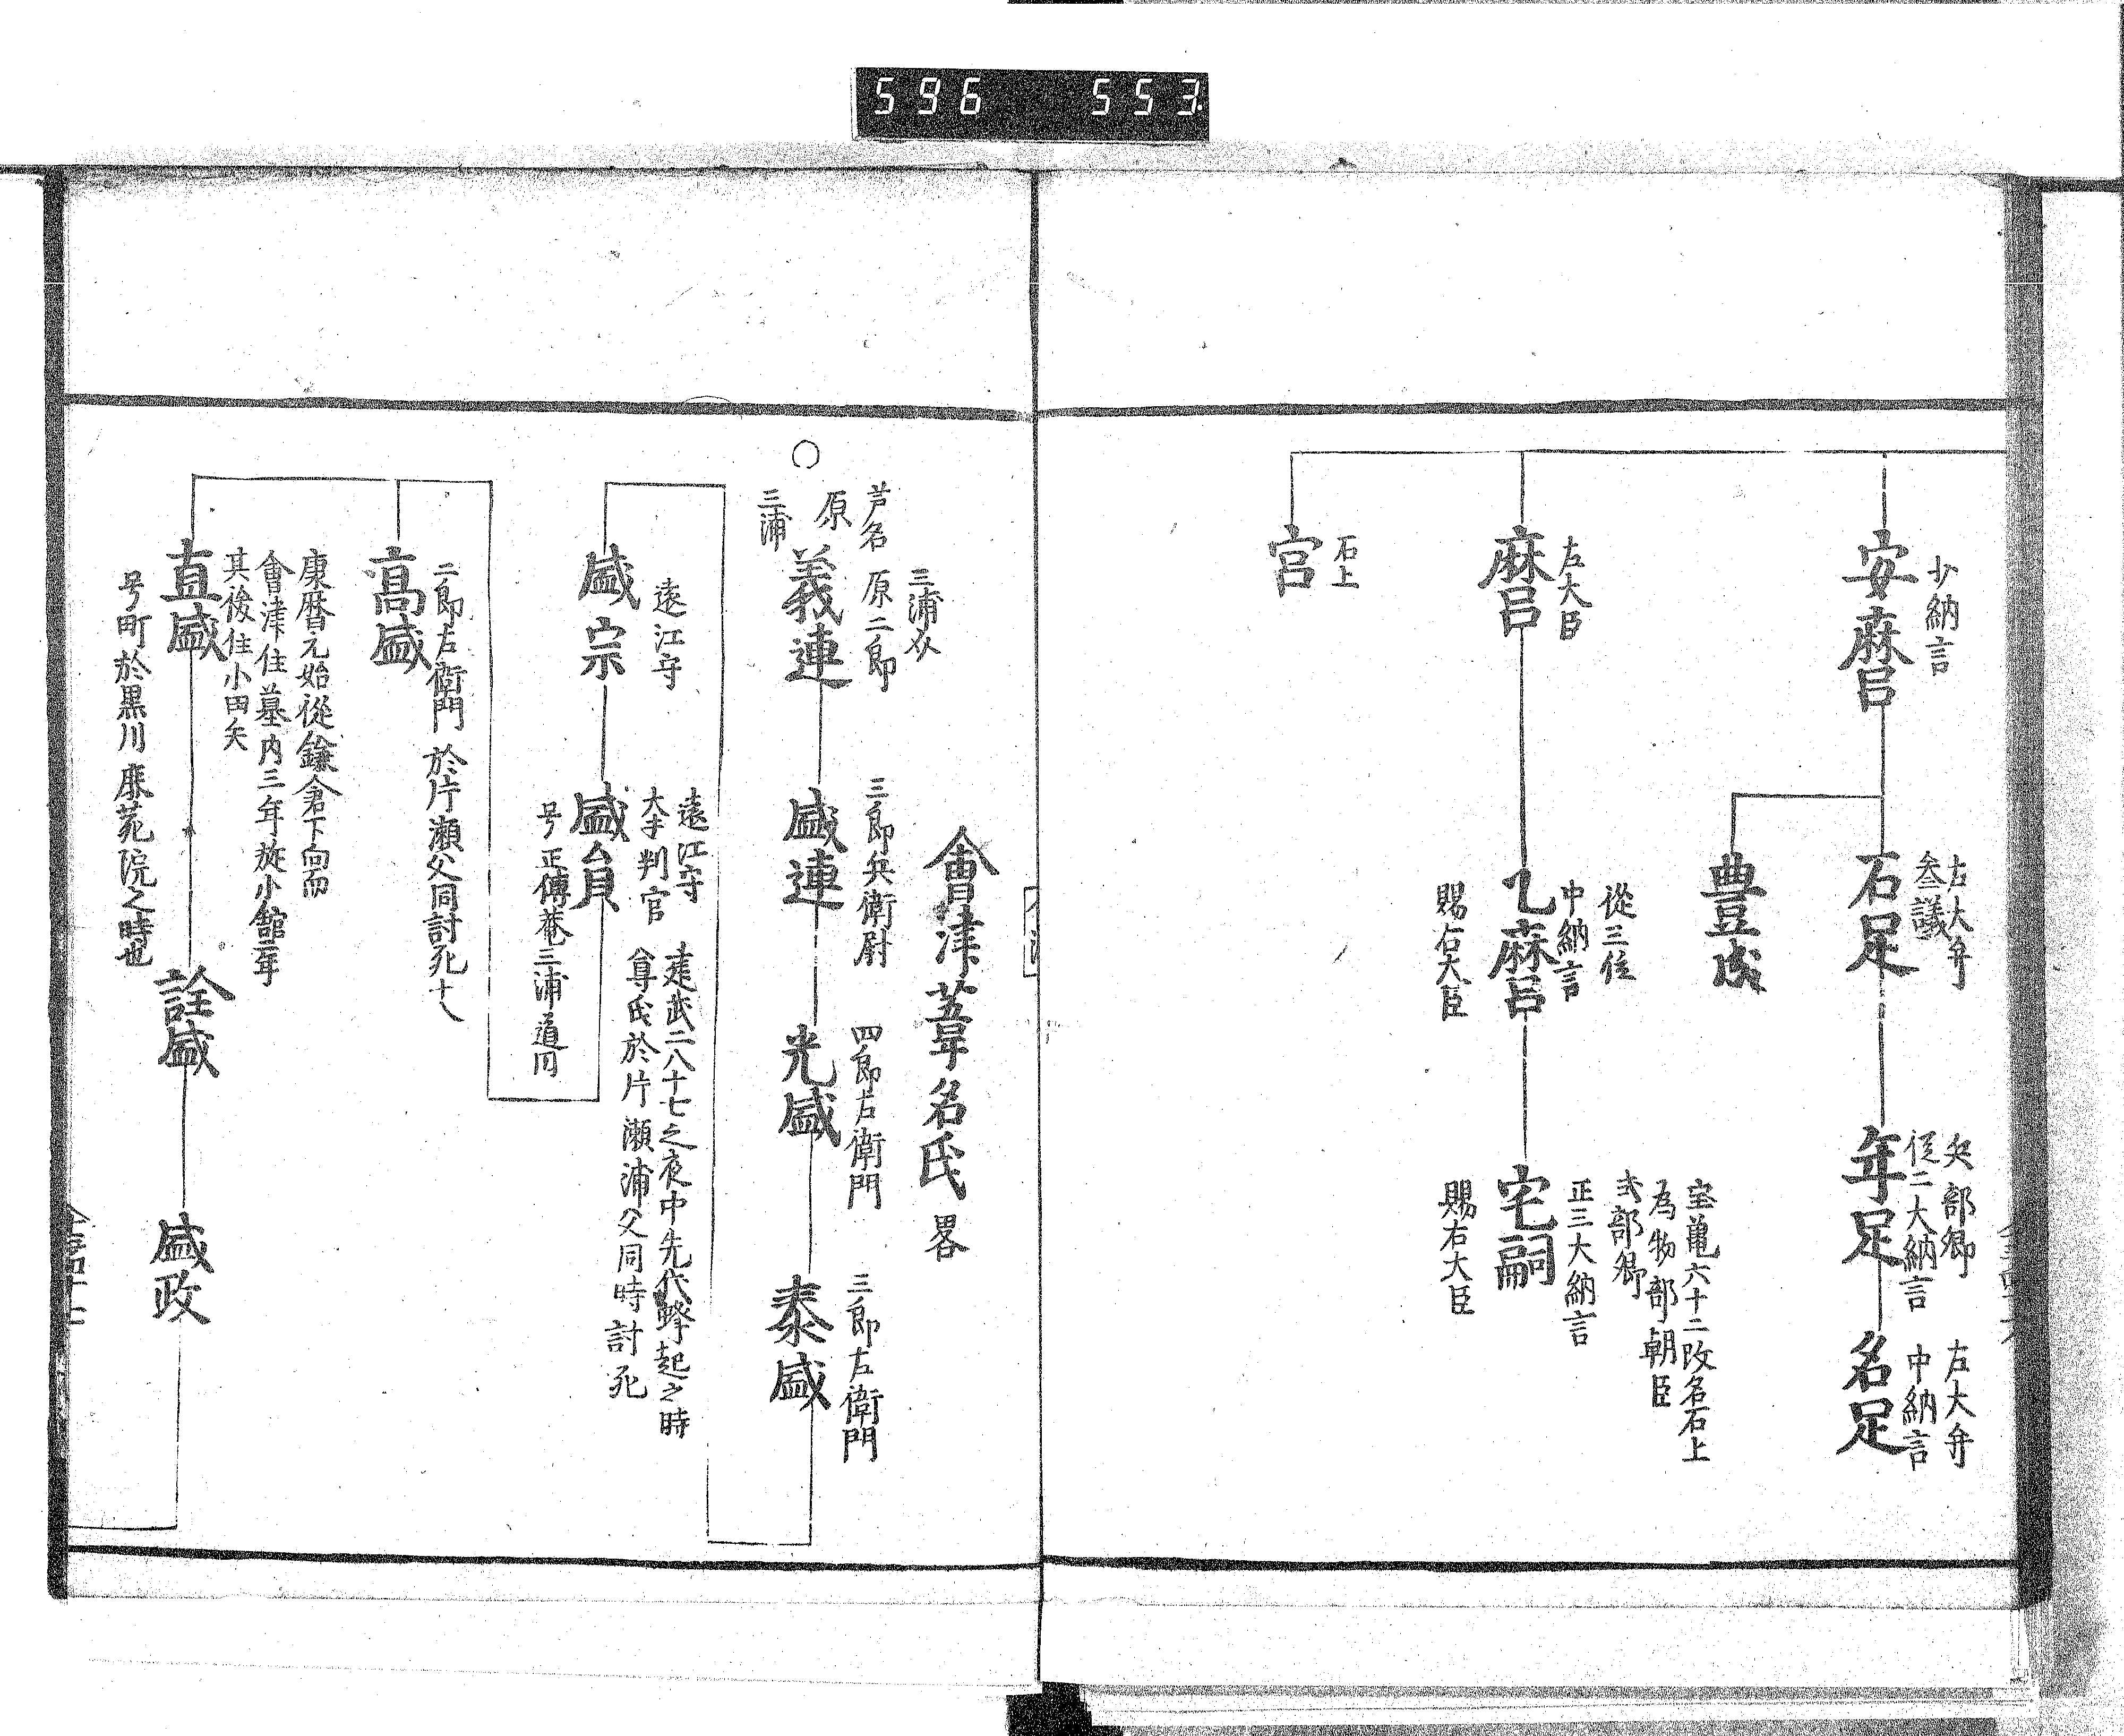 596 553
少納言
安麻呂
左大弁
叅議
石足
兵部卿
從二大納言
年足
左大弁
中納言
名足
豊成
左大臣
麻呂
從三位
中納言
乙麻呂
賜右大臣
宝亀六十二改名石上
為物部朝臣
式部卿
正三大納言
宅嗣
賜右大臣
石上
宮
會津葦名氏畧
三浦
芦名 原二郎
原
義連
三浦
三郎兵衛尉
盛連
四郎左衛門
光盛
三郎左衛門
泰盛
遠江守
盛宗
遠江守
大夫判官
盛員
建武二八十七之夜中先代蜂起之時
尊氏於片瀬浦父同時討死
号正傳菴三浦道円
二郎左衛門 於片瀬父同討死十八
高盛
康暦元始從鎌倉下向而
會津住墓内三年於小舘三年
其後住小田矢
直盛
号町於黒川鹿苑院之時也
詮盛
盛政